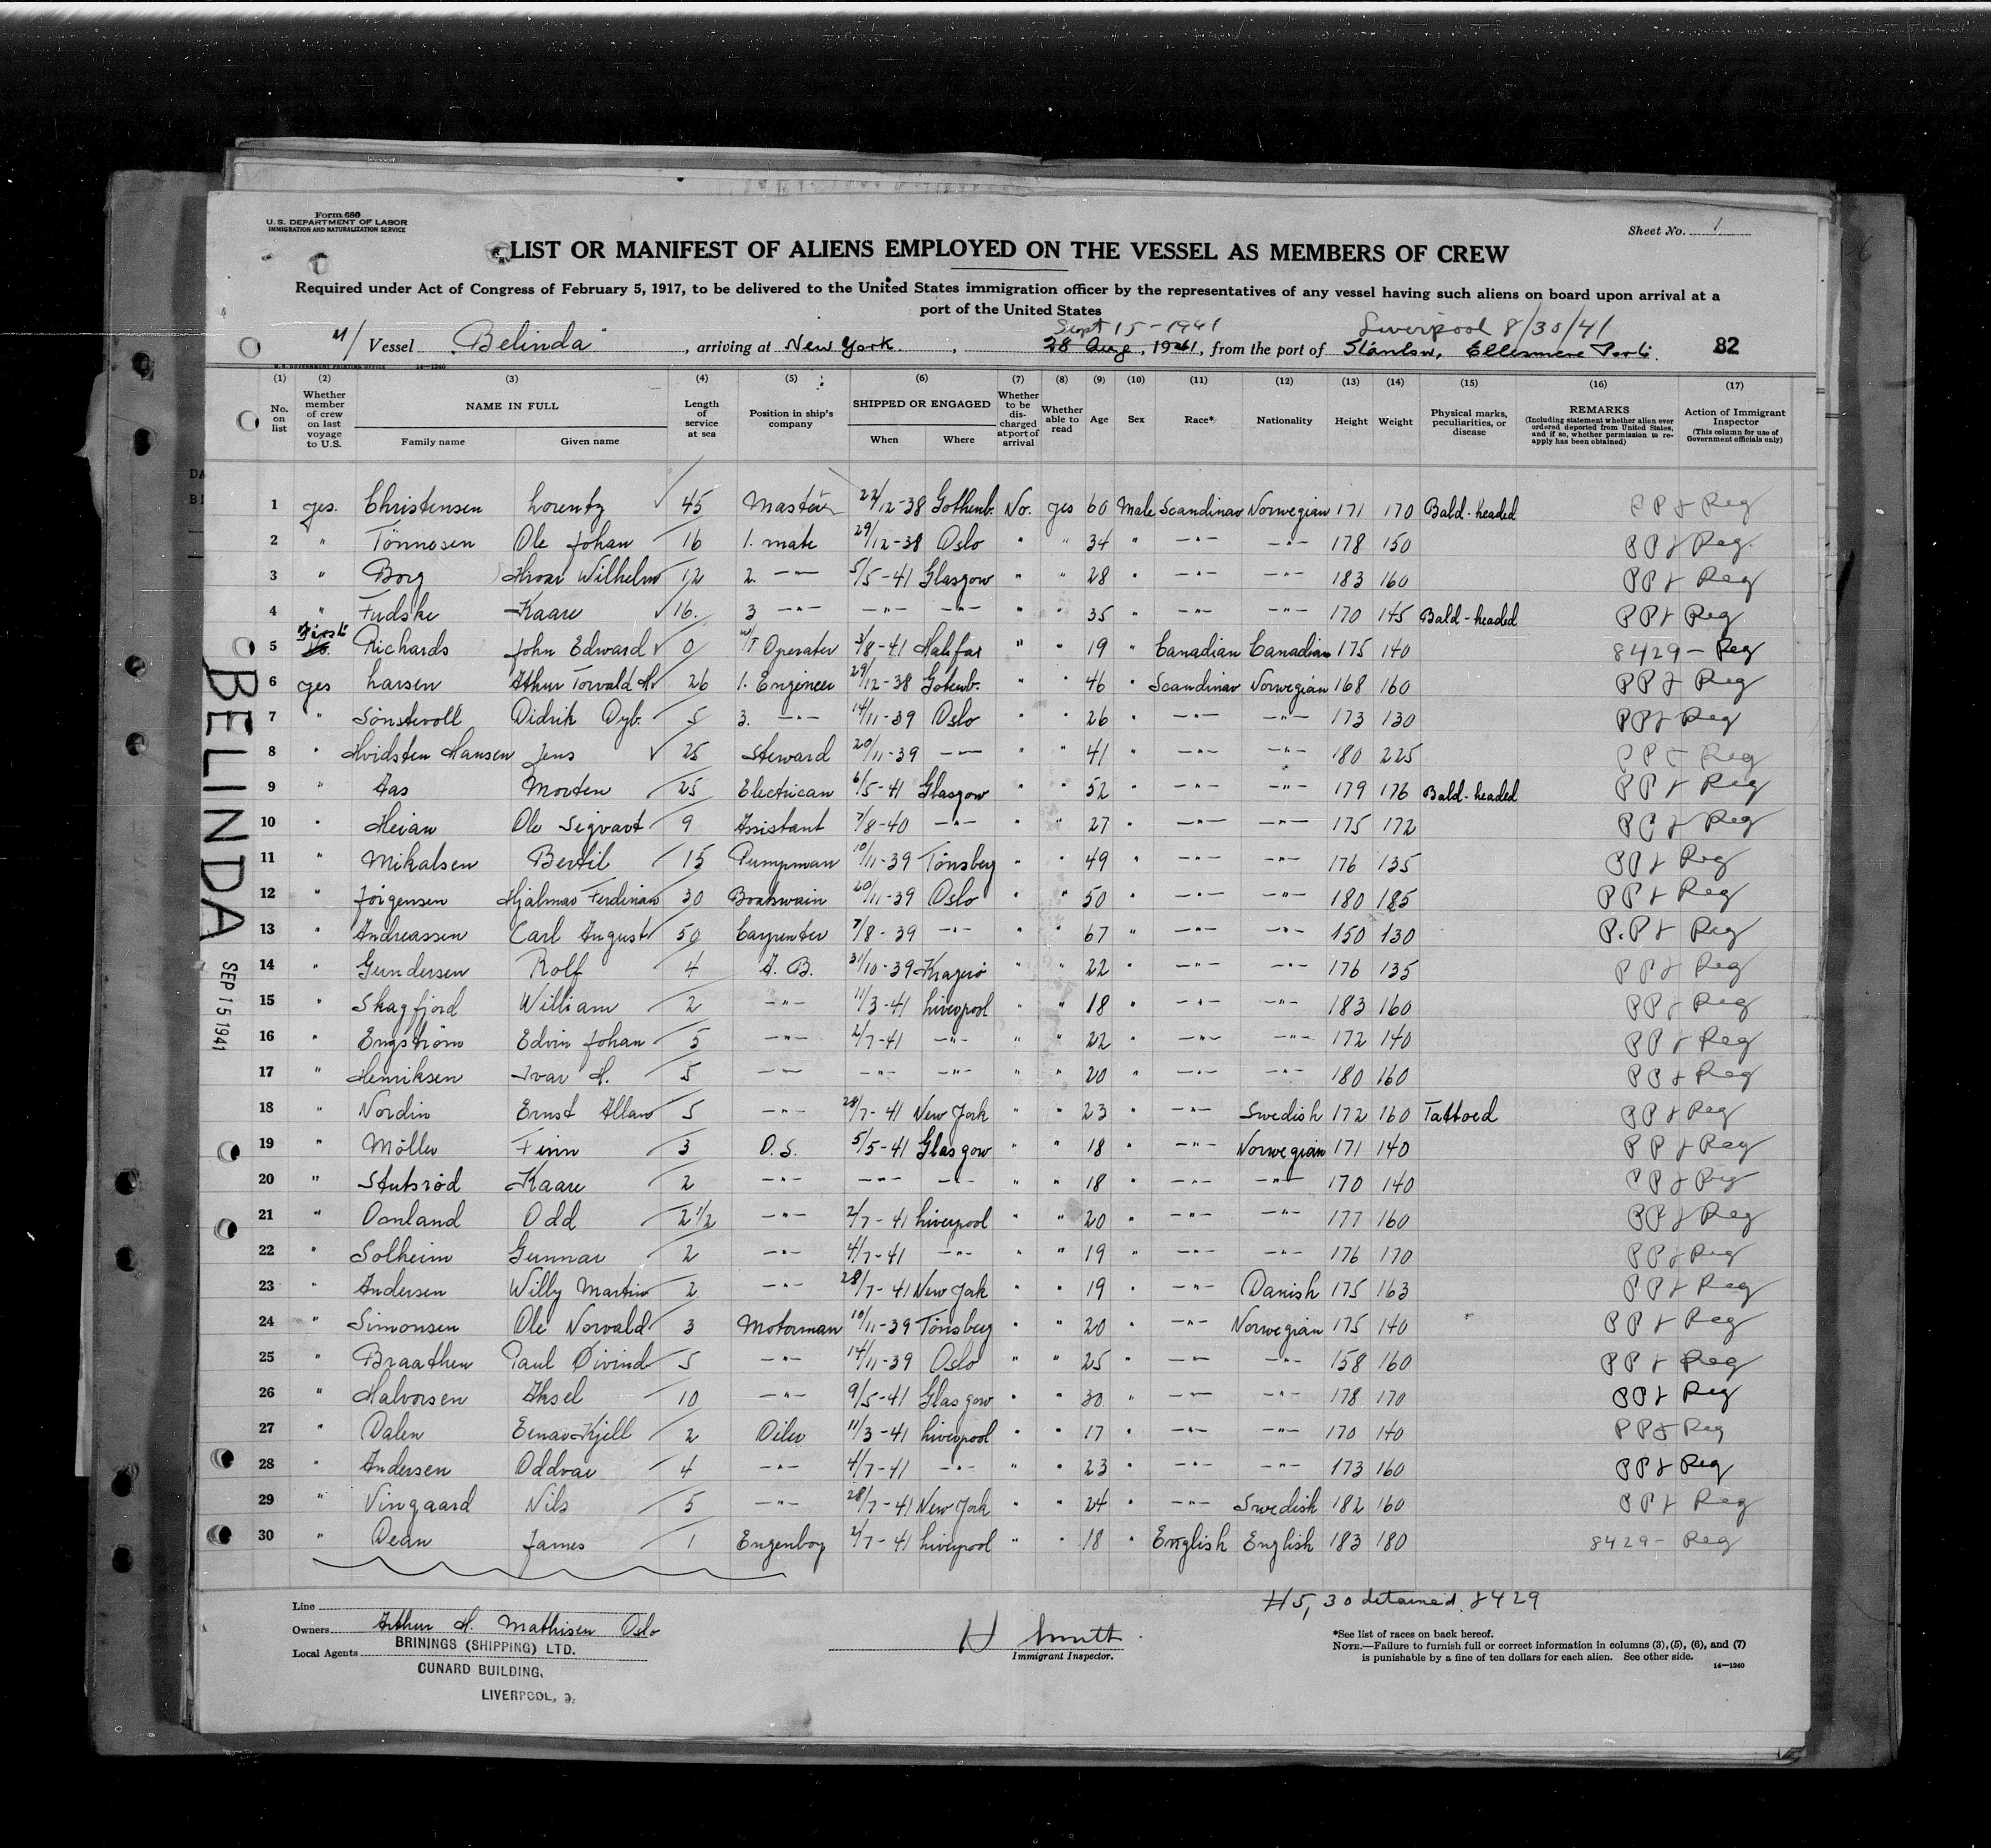 Form 680
U. S. DEPARTMENT OF LABOR
IMMIGRATION AND NATURALIZATION SERVICE
Sheet No. 1
LIST OR MANIFEST OF ALIENS EMPLOYED ON THE VESSEL AS MEMBERS OF CREW
Required under Act of Congress of February 5, 1917, to be delivered to the United States immigration officer by the representatives of any vessel having such aliens on board upon arrival at a
port of the United States
Sept 15-1941 Liverpool 8/30/41
M/ Vessel "Belinda", arriving at New York, 28 Aug, 1941, from the port of Stanlow, Ellesmere Port. 82
U. S. GOVERNMENT PRINTING OFFICE 14—1240
(1) (2) (3) (4) (5) (6) (7) (8) (9) (10) (11) (12) (13) (14) (15) (16) (17)
No. on list Whether member of crew on last voyage to U.S. NAME IN FULL Family name Given name Length of service at sea Position in ship's company SHIPPED OR ENGAGED When Where Whether to be discharged at port of arrival Whether able to read Age Sex Race* Nationality Height Weight Physical marks, peculiarities, or disease REMARKS (Including statement whether alien ever ordered deported from United States, and if so, whether permission to re-apply has been obtained) Action of Immigrant Inspector (This column for use of Government officials only)
1 yes. Christensen Lorentz 45 Master 22/12-38 Gothenb. No. yes 60 Male Scandinav Norwegian 171 170 Bald-headed PP & Reg
2 " Tönnesen Ole Johan 16 1. mate 29/12-38 Oslo " " 34 " -"- -"- 178 150 PP & Reg.
3 " Borg Hroar Wilhelm 12 2. -"- 5/5-41 Glasgow " " 28 " -"- -"- 183 160 PP & Reg
4 " Fudske Kaare 16. 3 -"- -"- -"- " " 35 " -"- -"- 170 145 Bald-headed PP & Reg
5 "First" No. Richards John Edward 0 W/T Operater 3/8-41 Halifax " " 19 " Canadian Canadian 175 140 8429- Reg
6 yes Larsen Athur Torvald H. 26 1. Engineer 29/12-38 Gotenb. " " 46 " Scandinav Norwegian 168 160 PP & Reg
7 " Sönstevoll Didrik Dyb. 5 3. -"- 14/11-39 Oslo " " 26 " -"- -"- 173 130 PP & Reg
8 " Hvidsten Hansen Jens 25 Steward 20/11-39 -"- " " 41 " -"- -"- 180 225 PP & Reg
9 " Aas Morten 25 Electrican 6/5-41 Glasgow " " 52 " -"- -"- 179 176 Bald-headed PP & Reg
10 " Heian Ole Sigvart 9 Assistant 7/8-40 -"- " " 27 " -"- -"- 175 172 PP & Reg
11 " Mikalsen Bertil 15 Pumpman 10/11-39 Tönsberg " " 49 " -"- -"- 176 135 PP & Reg
12 " Jörgensen Hjalmar Ferdinan 30 Boatswain 20/11-39 Oslo " " 50 " -"- -"- 180 185 PP & Reg
13 " Andreassen Carl August 50 Carpenter 7/8-39 -"- " " 67 " -"- -"- 150 130 P.P & Reg
14 " Gundersen Rolf 4 A. B. 31/10-39 Kragerö " " 22 " -"- -"- 176 135 PP & Reg
15 " Skagfjord William 2 -"- 11/3-41 Liverpool " " 18 " -"- -"- 183 160 PP & Reg
16 " Engström Edvin Johan 5 -"- 2/7-41 -"- " " 22 " -"- -"- 172 140 PP & Reg
17 " Henriksen Ivar H. 5 -"- -"- -"- " " 20 " -"- -"- 180 160 PP & Reg
18 " Nordin Ernst Allan 5 -"- 28/7-41 New York " " 23 " -"- Swedish 172 160 Tattoed PP & Reg
19 " Möller Finn 3 O.S. 5/5-41 Glasgow " " 18 " -"- Norwegian 171 140 PP & Reg
20 " Stutsröd Kaare 2 -"- -"- -"- " " 18 " -"- -"- 170 140 PP & Reg
21 " Danland Odd 2 1/2 -"- 2/7-41 Liverpool " " 20 " -"- -"- 177 160 PP & Reg
22 " Solheim Gunnar 2 -"- 4/7-41 -"- " " 19 " -"- -"- 176 170 PP & Reg
23 " Andersen Willy Martin 2 -"- 28/7-41 New York " " 19 " -"- Danish 175 163 PP & Reg
24 " Simonsen Ole Norvald 3 Motorman 10/11-39 Tönsberg " " 20 " -"- Norwegian 175 140 PP & Reg
25 " Braathen Paul Öivind 5 -"- 14/11-39 Oslo " " 25 " -"- -"- 158 160 PP & Reg
26 " Halvorsen Aksel 10 -"- 9/5-41 Glasgow " " 30 " -"- -"- 178 170 PP & Reg
27 " Dalen Einar Kjell 2 Oiler 11/3-41 Liverpool " " 17 " -"- -"- 170 140 PP & Reg
28 " Andersen Oddvar 4 -"- 4/7-41 -"- " " 23 " -"- -"- 173 160 PP & Reg
29 " Vingaard Nils 5 -"- 28/7-41 New York " " 24 " -"- Swedish 182 160 PP & Reg
30 " Dean James 1 Engenboy 2/7-41 Liverpool " " 18 " English English 183 180 8429- Reg
BELINDA
SEP 15 1941
#5, 30 detained 8429
Line
Owners Arthur H. Mathisen Oslo
Local Agents BRININGS (SHIPPING) LTD.
CUNARD BUILDING,
LIVERPOOL, 3.
H Smith
Immigrant Inspector.
*See list of races on back hereof.
NOTE.—Failure to furnish full or correct information in columns (3), (5), (6), and (7)
is punishable by a fine of ten dollars for each alien. See other side.
14—1240